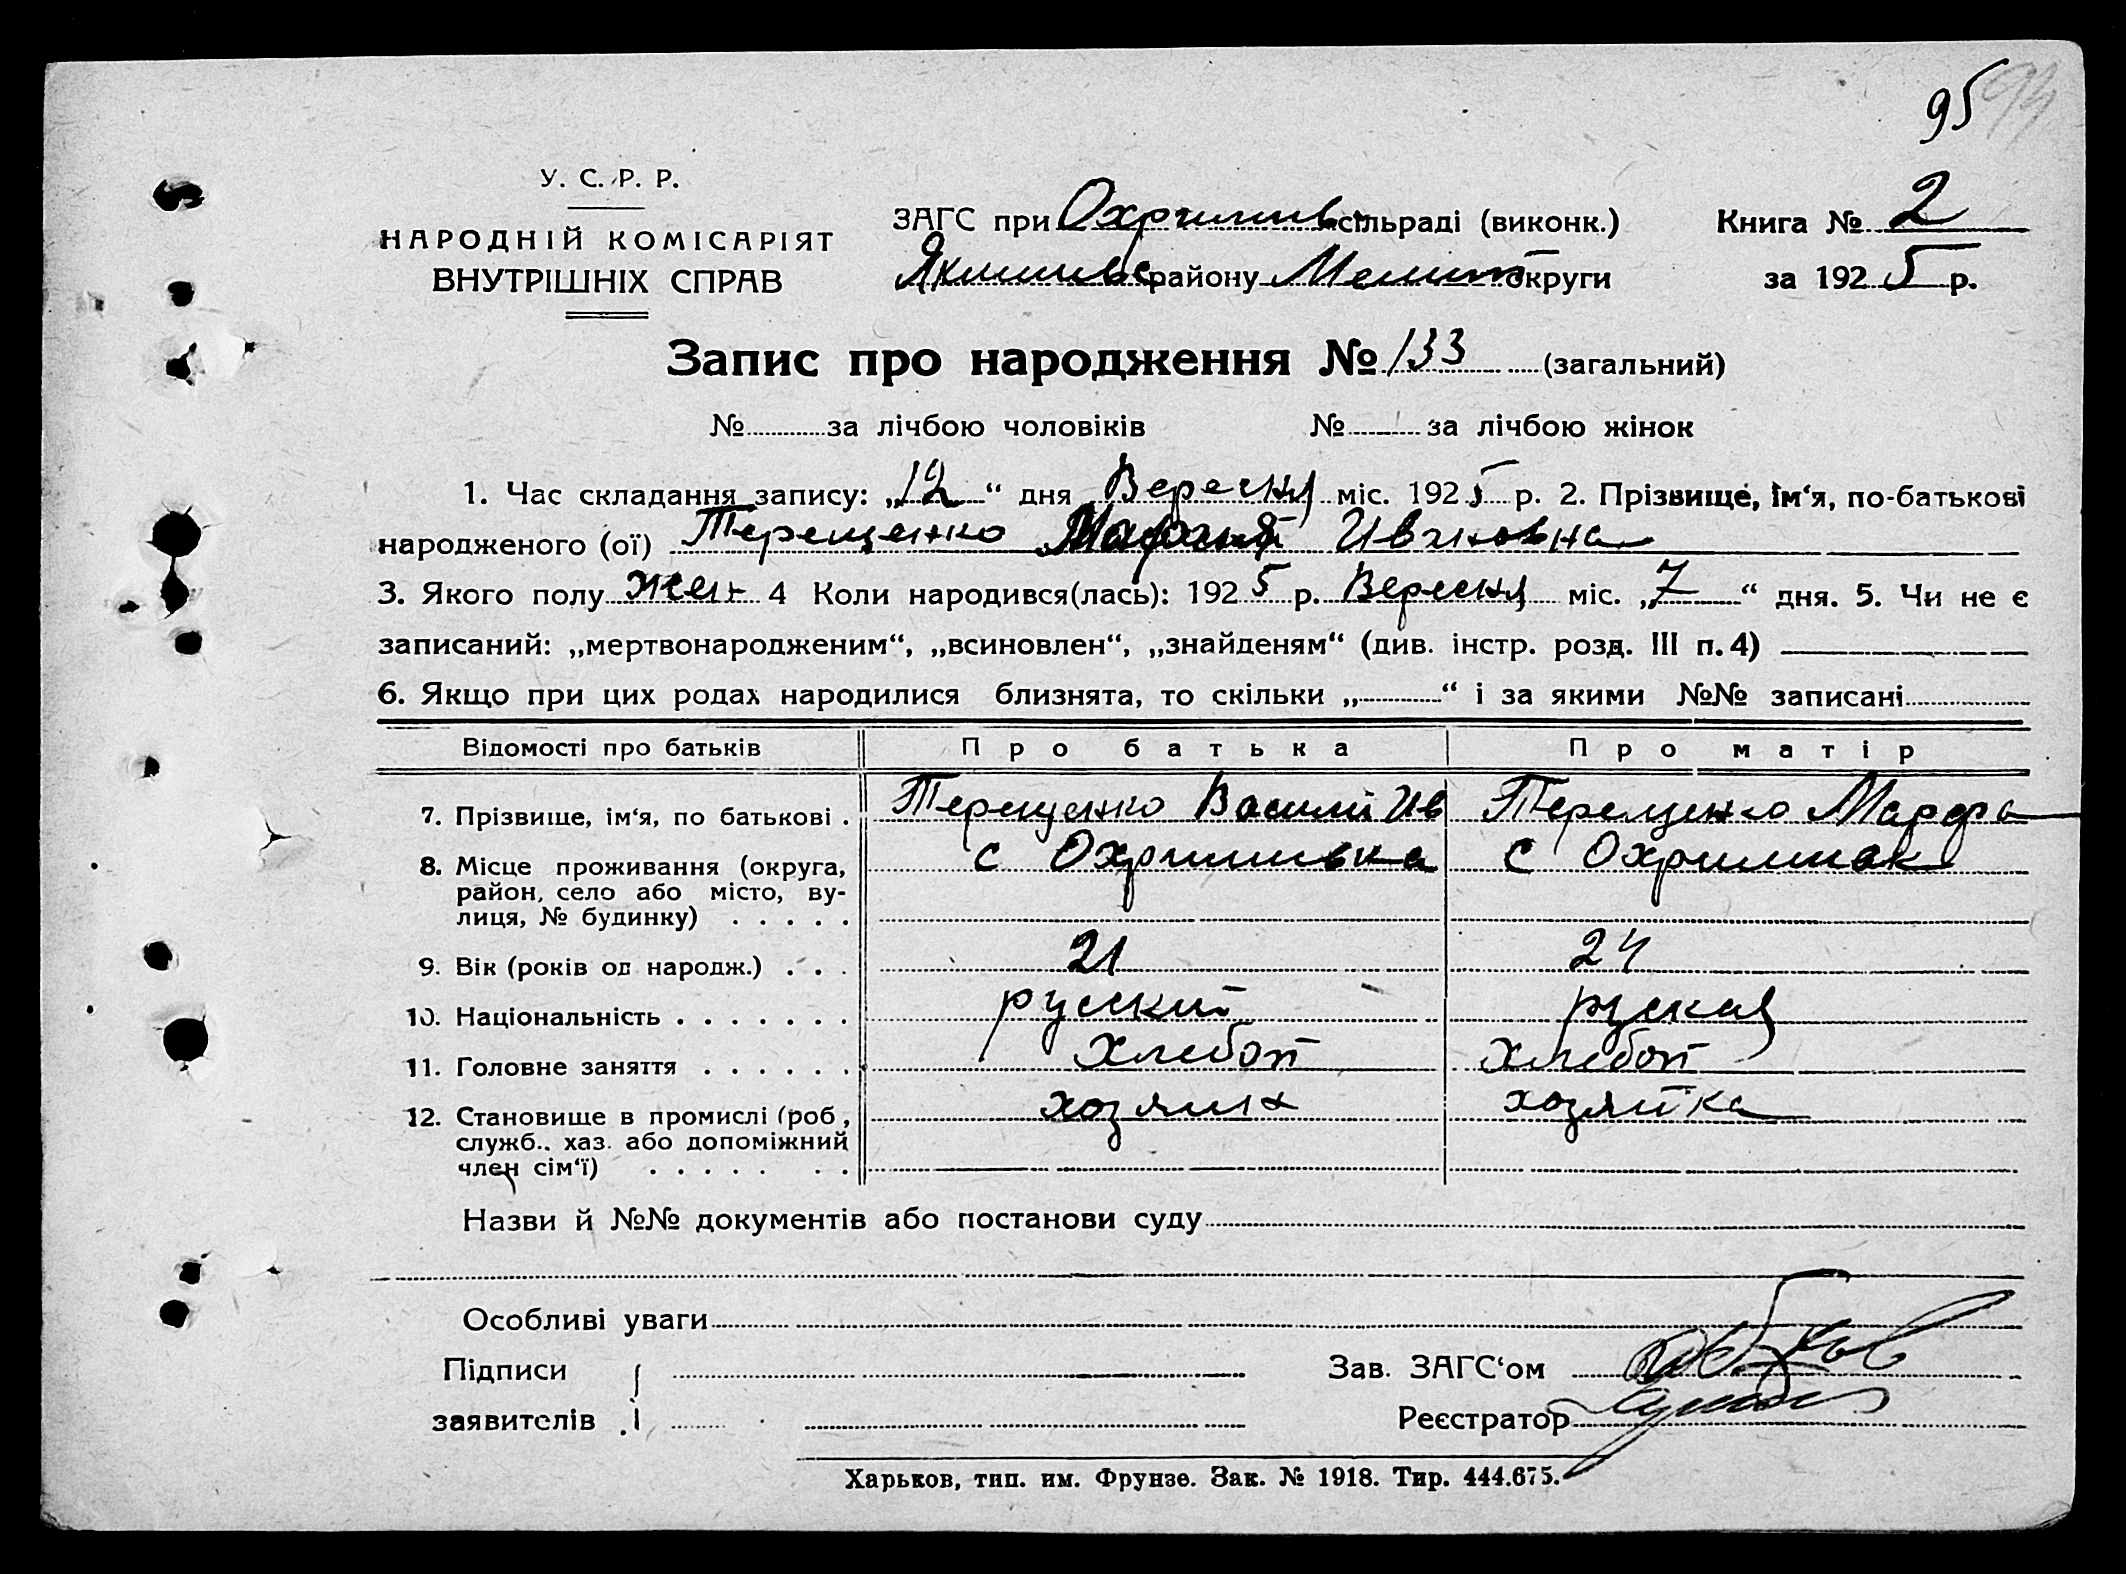 95 94
У. С. Р. Р.
НАРОДНІЙ КОМІСАРІЯТ
ВНУТРІШНІХ СПРАВ
ЗАГС при Охримив. сільраді (виконк.)
Якимивс району Мелит округи
Книга № 2
за 1925 р.
Запис про народження № 133 (загальний)
№ за лічбою чоловіків № за лічбою жінок
1. Час складання запису: „12“ дня Вересня міс. 1925 р. 2. Прізвище, ім‘я, по-батькові
народженого (ої) Терещенко Ивановна
3. Якого полу жен 4 Коли народився(лась): 1925 р. Вересня міс. „7“ дня. 5. Чи не є
записаний: „мертвонародженим“, „всиновлен“, „знайденям“ (див. інстр. розд. III п. 4)
6. Якщо при цих родах народилися близнята, то скільки „ “ і за якими №№ записані
Відомості про батьків Про батька Про матір
7. Прізвище, ім‘я, по батькові . Терещенко Василий Ив Терещенко Марфа
8. Місце проживання (округа, с Охримивка с Охримивк
район, село або місто, ву-
лиця, № будинку) . . . . .
9. Вік (років од народж.) . . . 21 24
10. Національність . . . . . . . руский руская
11. Головне заняття . . . . . . Хлебоп Хлебоп
12. Становище в промислі (роб, хозяин хозяйка
служб., хаз. або допоміжний
член сім‘ї) . . . . . . .
Назви й №№ документів або постанови суду
Особливі уваги
Підписи
заявителів
Зав. ЗАГС‘ом
Реєстратор
Харьков, тип. им. Фрунзе. Зак. № 1918. Тир. 444.675.